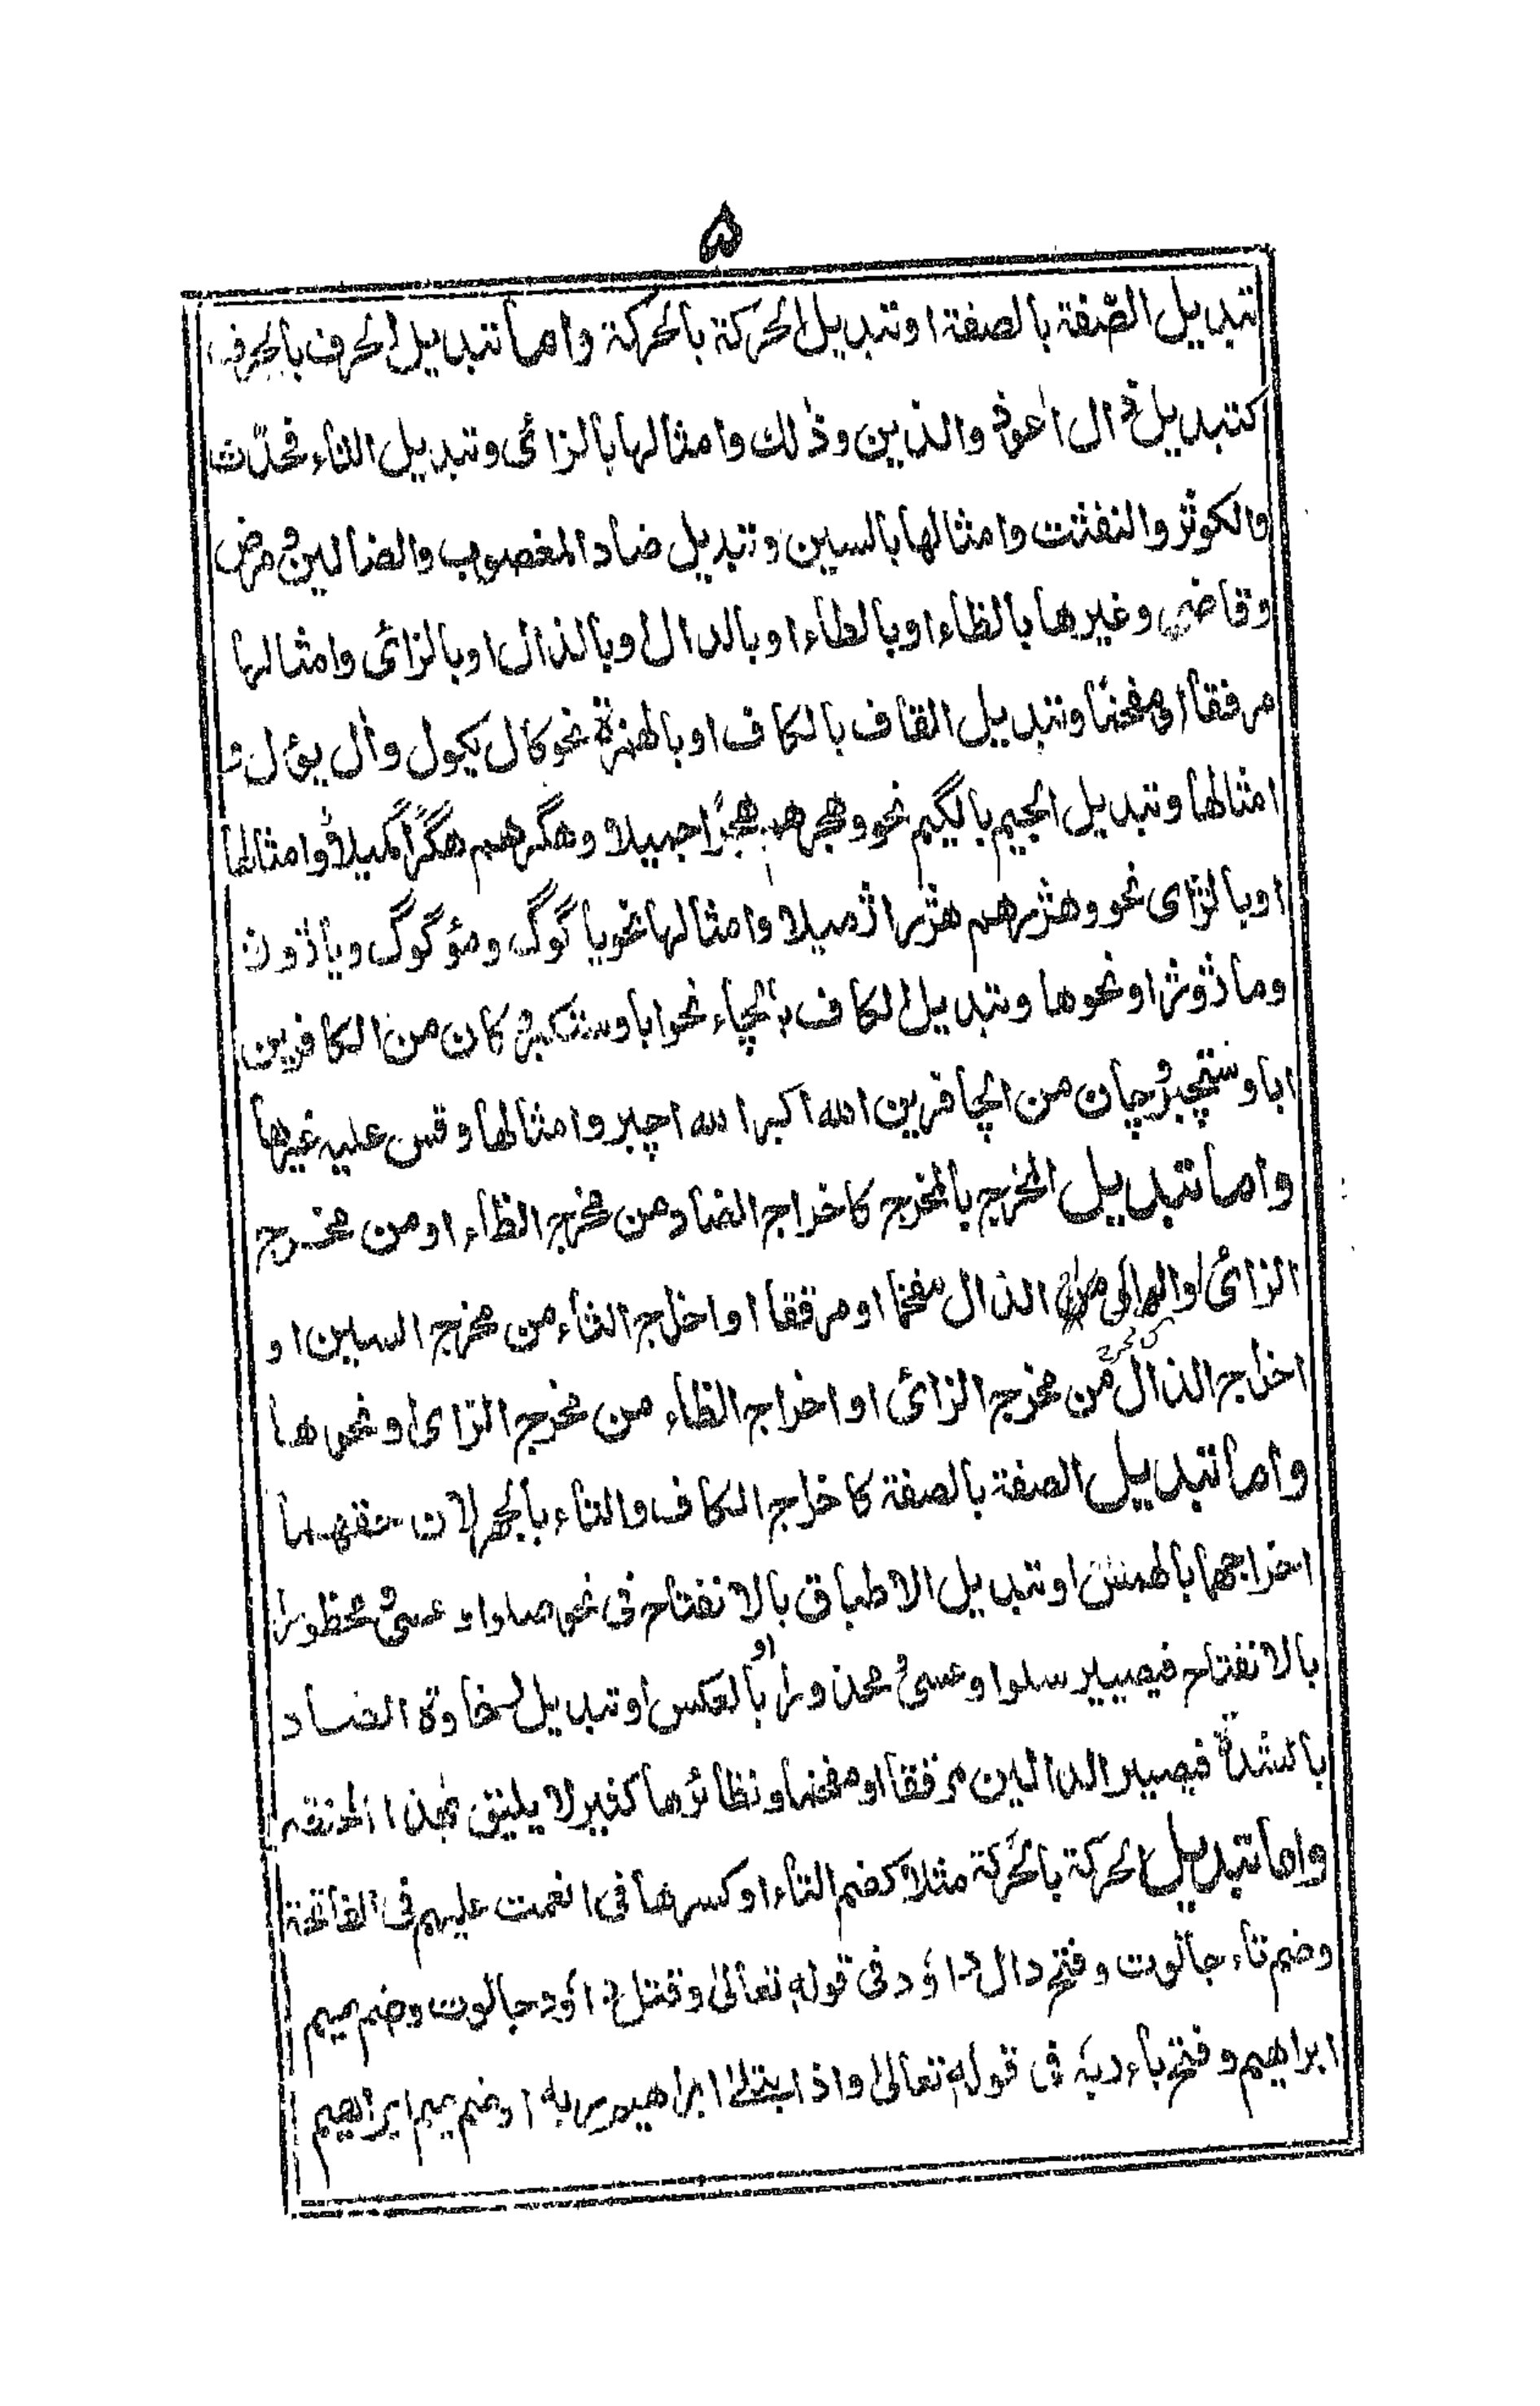 ۵
تبديل الصّفة بالصفة او تبديل الحركة بالحركة واما تبديل الحرف بالحرف
كتبديل ذال اعوذ والذين وذٰلك وامثالها بالزائى وتبديل الثاء فحدّث
والكوثر والنفثت وامثالها بالسين وتبديل ضاد المغضوب والضالين و مرض
وقاضى وغيرها بالظاء او بالطاء او بالدال او بالذال او بالزائى وامثالها
مرققا او مفخما وتبديل القاف بالكاف او بالهمزة نحو كال يكول واٰل يئول
امثالها وتبديل الجيم بالگيم نحو وهجرهم هجرًا جميلا وهگرهم هگرًا گميلا وامثالها
او بالژاى نحو وهژرهم هژرا ژميلا وامثالها نحو ياگوگ ومؤگوگ وياژوژ
وماژوژ او نحوها وتبديل الكاف بالچاء نحو ابا وستكبر و كان من الكافرين
ابا وستچبر وچان من الچافرين الله اكبر الله اچبر وامثالها وقس عليه غيرها
واما تبديل المخرج بالمخرج كاخراج الضاد من مخرج الظاء او من مخرج
الزائى او الدال الذال مفخما او مرققا او اخراج الثاء من مخرج السين او
اخراج الذال من مخرج الزائى او اخراج الظاء من مخرج الزاى او نحوها
واما تبديل الصفة بالصفة كاخراج الكاف والتاء بالجهر لان حقهما
اخراجهما بالهمس او تبديل الاطباق بالانفتاح فى نحو صلوا و عسىٰ و محظورا
بالانفتاح فيصير سلوا وعسىٰ و محذورا او بالعكس او تبديل رخاوة الضاد
بالشدة فيصير الدالين مرققا او مفخما ونظائرها كثير لا يليق بهذا المختصر
واما تبديل الحركة بالحركة مثلا كضم التاء او كسرها فى انعمت عليهم فى الفاتحة
وضم تاء جالوت وفتح دال داؤد فى قوله تعالىٰ وقتل داؤد جالوت وضم ميم
ابراهيم وفتح باء ربه فى قوله تعالىٰ واذ ابتلىٰ ابراهيم ربه او ضم ميم ابراهيم